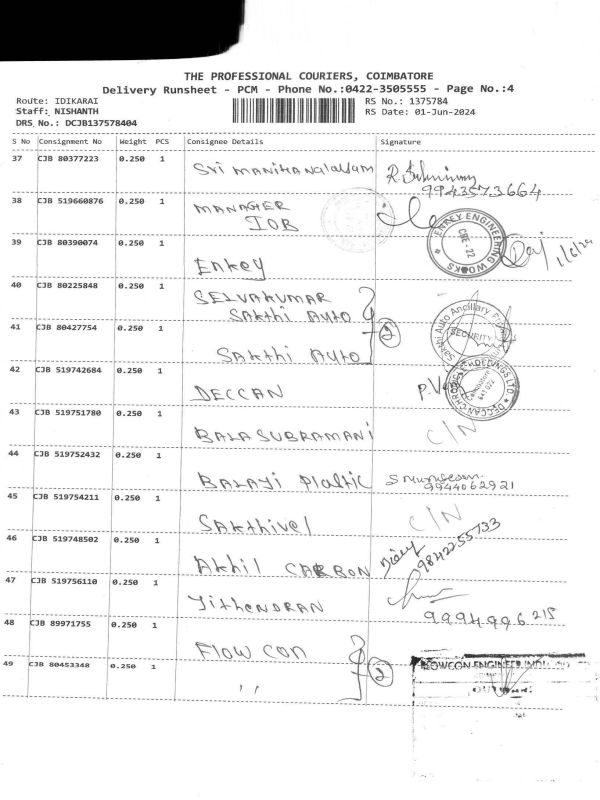 THE PROFESSIONAL COURIERS, COIMBATORE
Delivery Runsheet - PCM - Phone No.:0422-3505555 - Page No.:4
Route: IDIKARAI
RS No.: 1375784
Staff: NISHANTH
RS Date: 01-Jun-2024
DRS No.: DCJB137578404
S No Consignment No Weight PCS Consignee Details Signature
37 CJB 80377223 0.250 1
9943573664
38 CJB 519660876 0.250 1 MANAGER
IOB
ENKEY ENGINEERING WORKS
CBE-22
39 CJB 80390074 0.250 1 Enkey
1/6/24
40 CJB 80225848 0.250 1 SELVAKUMAR
Sakthi Auto
2
41 CJB 80427754 0.250 1 Sakthi Auto
Sakthi Auto Ancillary
SECURITY
42 CJB 519742684 0.250 1 DECCAN
DECCAN CHRONICLE HOLDINGS LTD
43 CJB 519751780 0.250 1 BALASUBRAMANI
C/N
44 CJB 519752432 0.250 1 BALAJI Plaltic
9944062921
45 CJB 519754211 0.250 1 SAKthivel
C/N
46 CJB 519748502 0.250 1 Akhil CARBON
9842255733
47 CJB 519756110 0.250 1 JithENDRAN
9994996215
48 CJB 89971755 0.250 1 FLOW CON
2
49 CJB 80453348 0.250 1 ,,